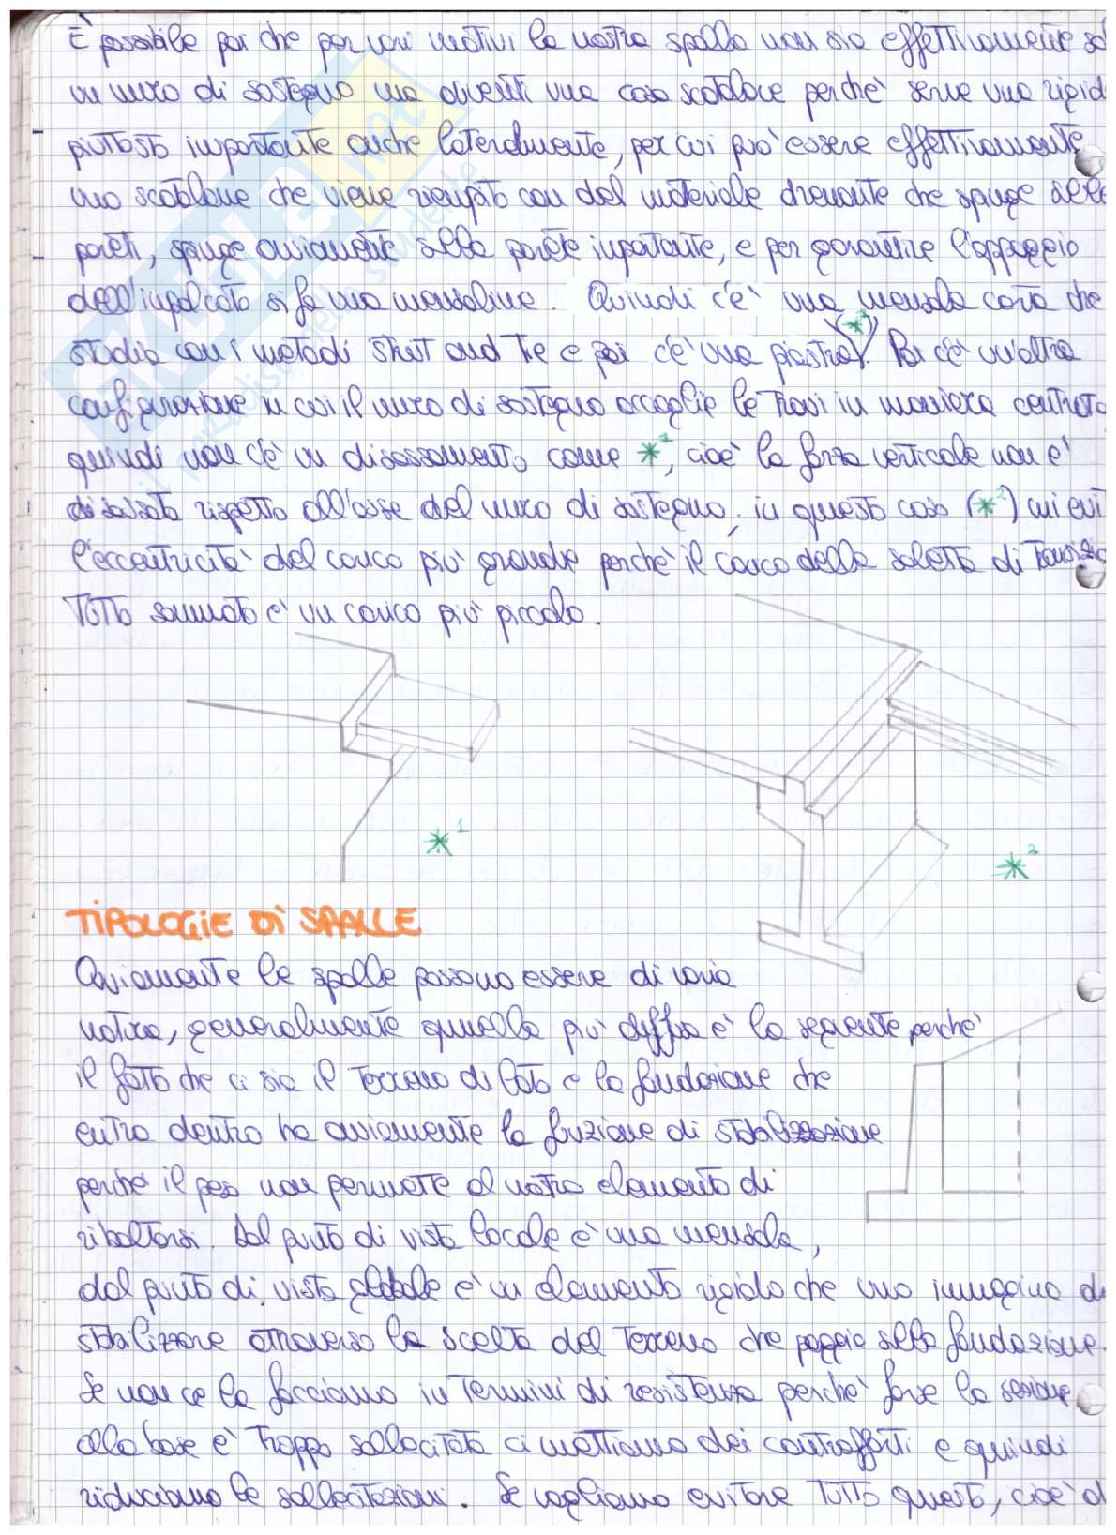 È possibile poi che per vari motivi la nostra spalla non sia effettivamente so
un muro di sostegno ma diventi una cosa scatolare perchè serve una rigid
piuttosto importante anche lateralmente, per cui può essere effettivamente
uno scatolone che viene riempito con del materiale drenante che spinge sulle
pareti, spinge ovviamente sulla parete importante, e per garantire l'appoggio
dell'impalcato si fa una mensolina. Quindi c'è una mensola corta che
studio con i metodi Strut and Tie e poi c'è una piastra (*¹). Poi c'è un'altra
configurazione in cui il muro di sostegno accoglie le travi in maniera centrata
quindi non c'è un disassamento come *¹, cioè la forza verticale non è
disassata rispetto all'asse del muro di sostegno; in questo caso (*²) mi evit
l'eccentricità del carico più grande perchè il carico della soletta di transizio
tutto sommato è un carico più piccolo.
*¹
*²
TIPOLOGIE DI SPALLE
Ovviamente le spalle possono essere di varia
natura, generalmente quella più diffusa è la seguente perchè
il fatto che ci sia il terreno di lato e la fondazione che
entra dentro ha ovviamente la funzione di stabilizzazione
perchè il peso non permette al nostro elemento di
ribaltarsi. Dal punto di vista locale è una mensola,
dal punto di vista globale è un elemento rigido che uno immagina di
stabilizzare attraverso la scelta del terreno che poggia sulla fondazione.
Se non ce la facciamo in termini di resistenza perchè forse la sezione
alla base è troppo sollecitata ci mettiamo dei contrafforti e quindi
riduciamo le sollecitazioni. Se vogliamo evitare tutto questo, cioè d